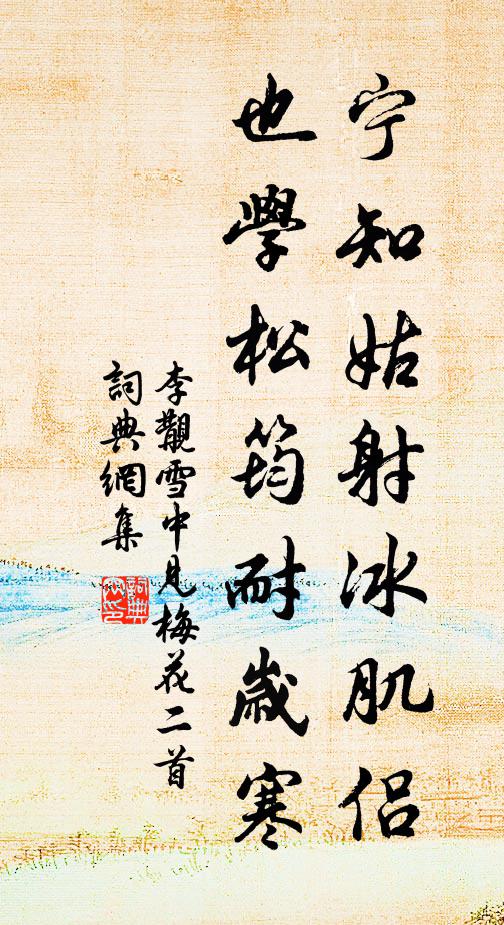 宁知姑射冰肌侣
也學松筠耐歲寒
李覯雪中見梅花二首
詞典網集